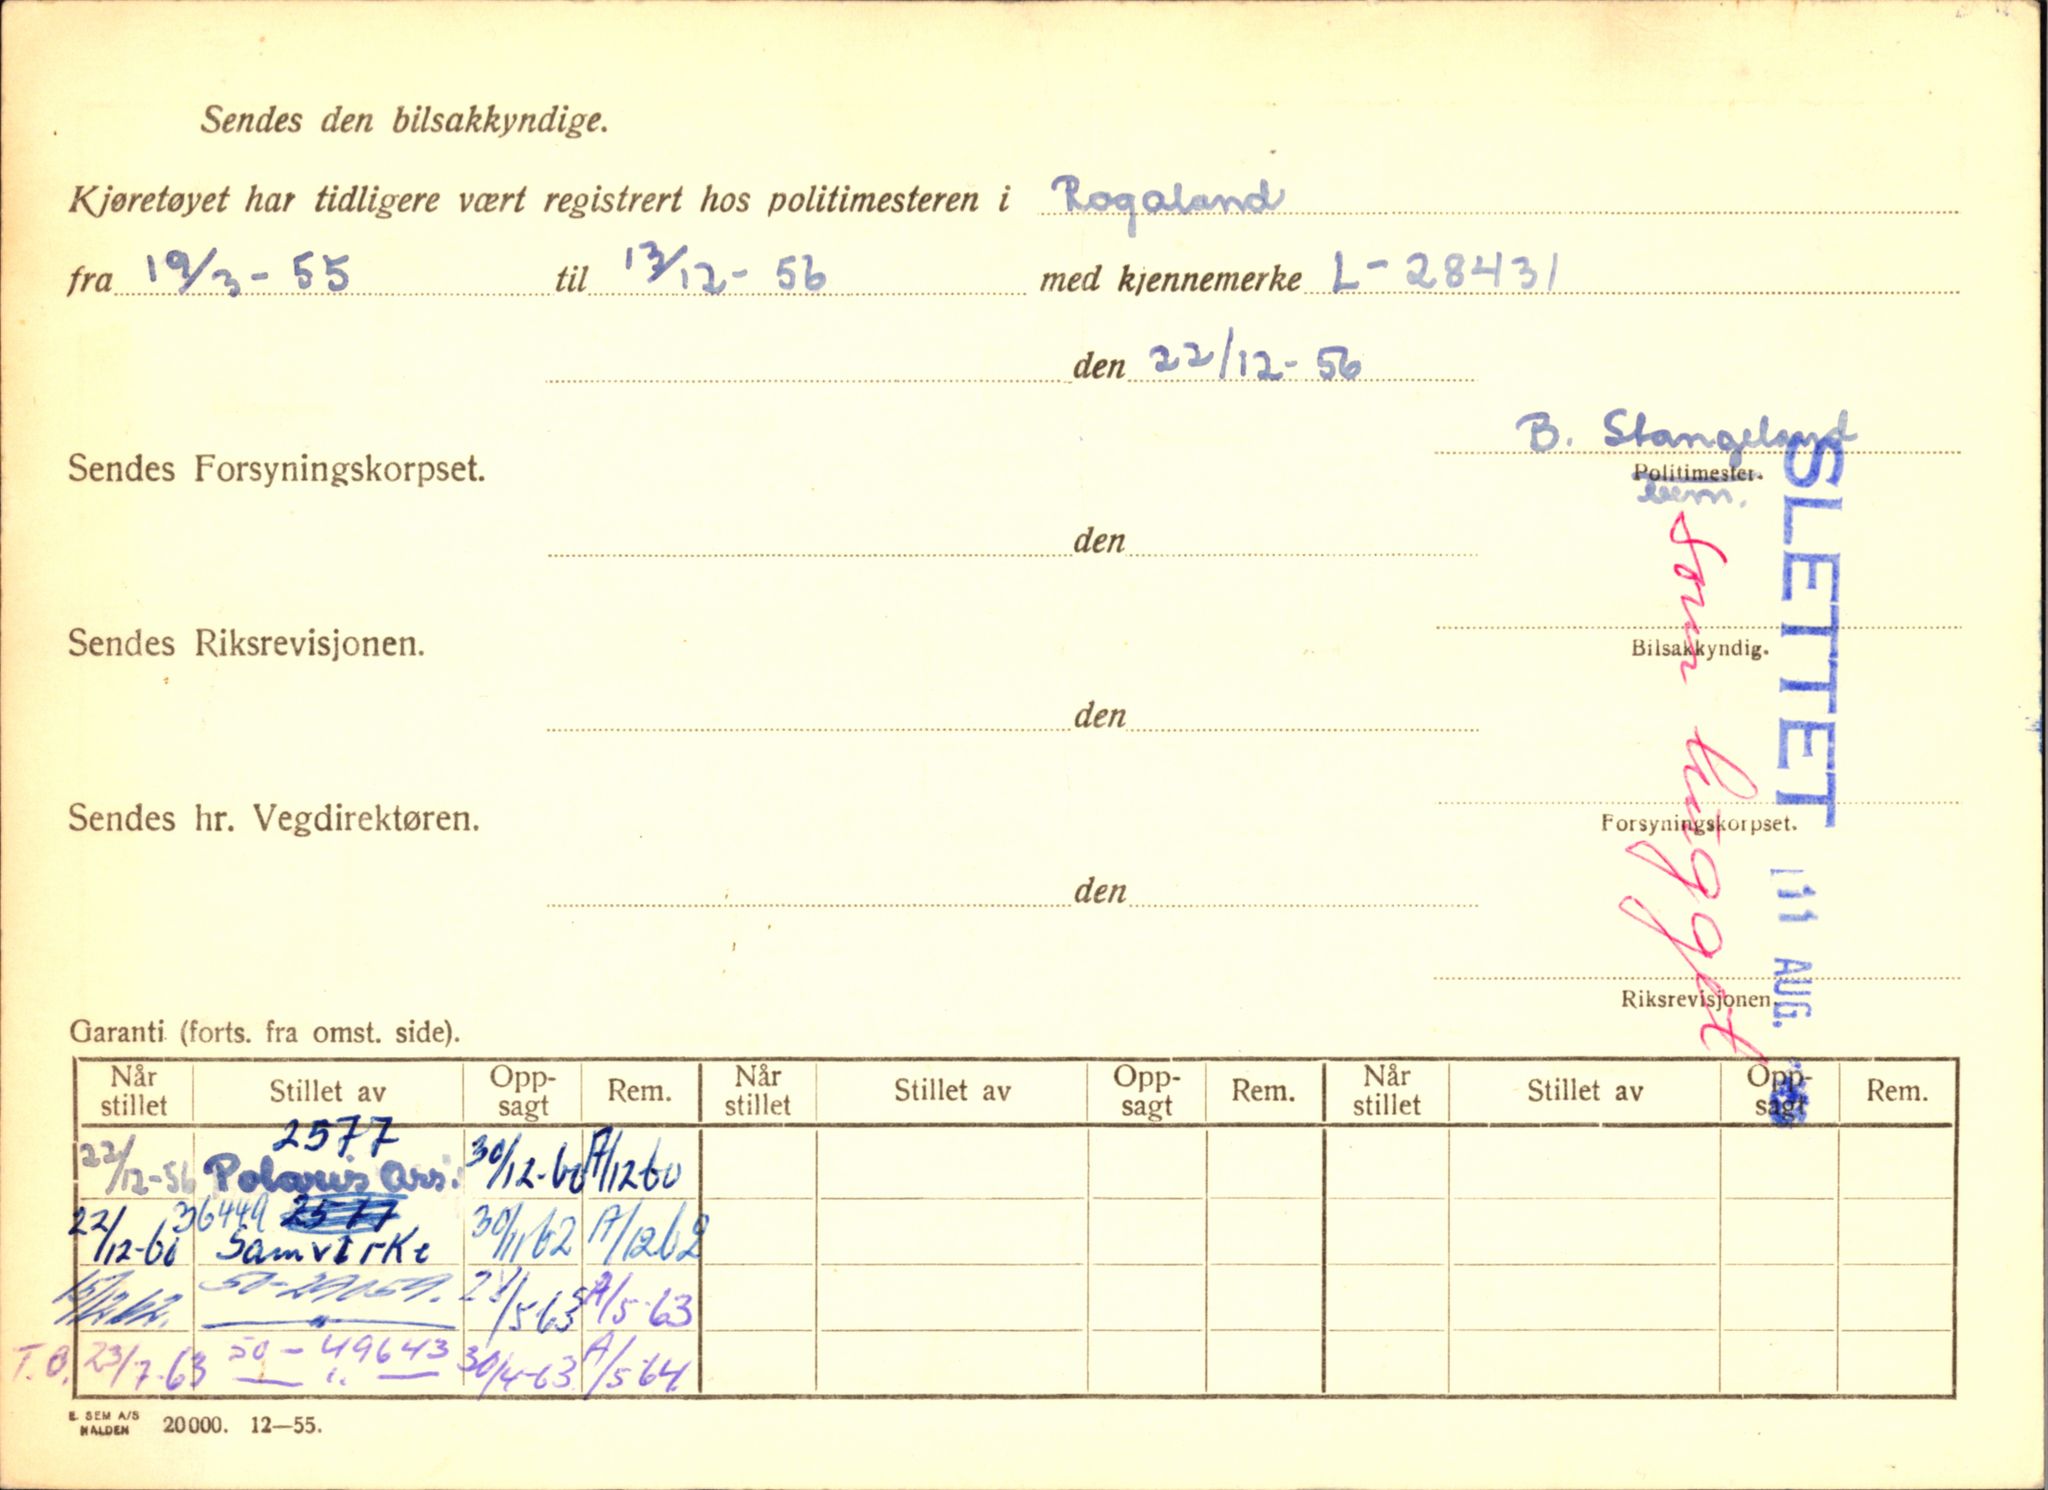 Sendes den bilsakkyndige.
Kjøretøyet har tidligere vært registrert hos politimesteren i Rogaland
fra 19/3 - 55 til 13/12 - 56 med kjennemerke L - 28431
den 22/12 - 56
B. Stangeland
Sendes Forsyningskorpset.
Politimester.
den
Sendes Riksrevisjonen.
Bilsakkyndig.
den
Sendes hr. Vegdirektøren.
Forsyningskorpset.
den
Riksrevisjonen.
SLETTET 11 AUG.
som hugget
Garanti (forts. fra omst. side).
Når stillet Stillet av Opp-sagt Rem. Når stillet Stillet av Opp-sagt Rem. Når stillet Stillet av Opp-sagt Rem.
2577
22/12-56 Polaris Ass. 30/12-60 A/12 60
36449 2577
22/12-60 Samvirke 30/11 62 A/12 62
15/12.62. 50-29059. /5-63 A/5-63
T.B. 23/7-63 50 - 49643 30/4-63 A/5-64
E. SEM A/S
HALDEN 20000. 12—55.